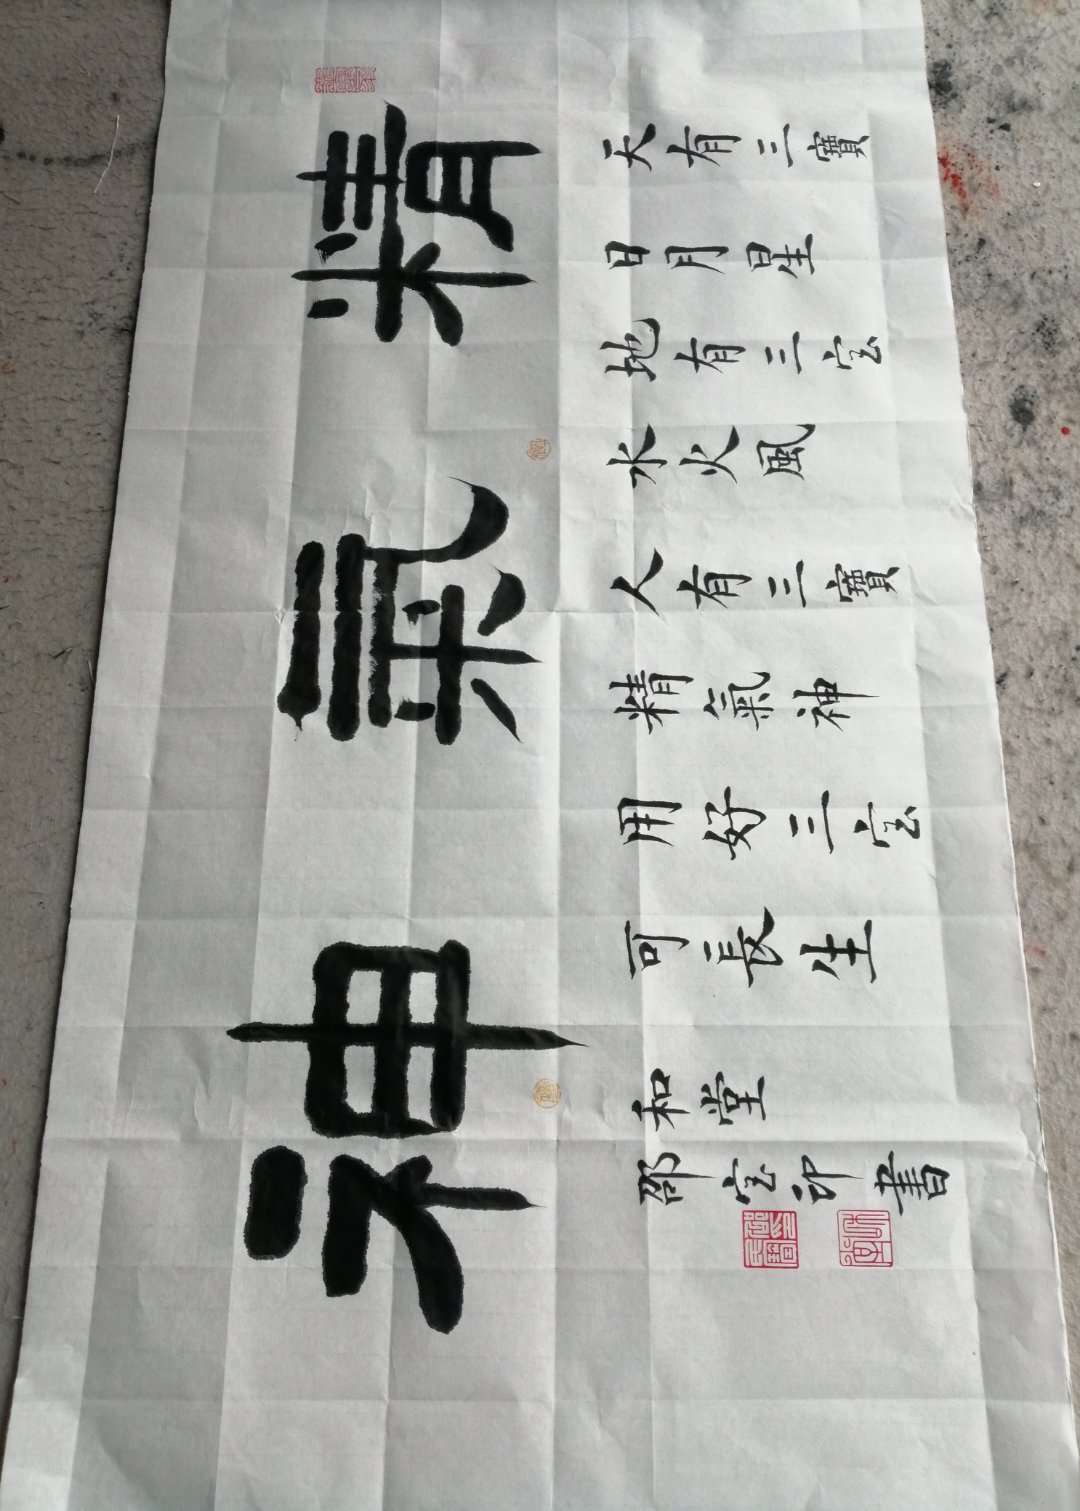 精氣神
天有三寶
日月星
地有三宝
水火風
人有三寶
精氣神
用好三宝
可長生
和堂
邵宝印書